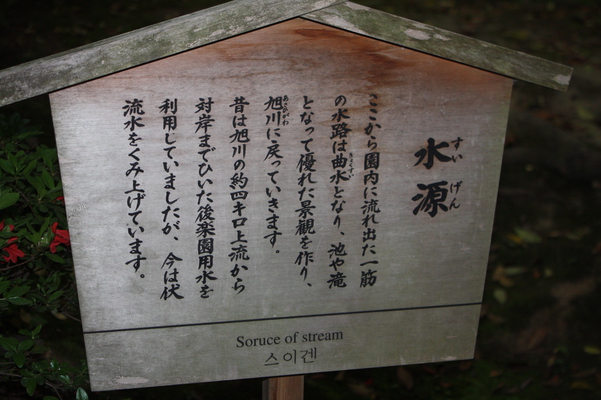 水源
すい げん
ここから園内に流れ出た一筋
の水路は曲水となり、池や滝
きょくすい
となって優れた景観を作り、
旭川に戻っていきます。
あさひがわ
昔は旭川の約四キロ上流から
対岸までひいた後楽園用水を
利用していましたが、今は伏
流水をくみ上げています。
Soruce of stream
스이겐